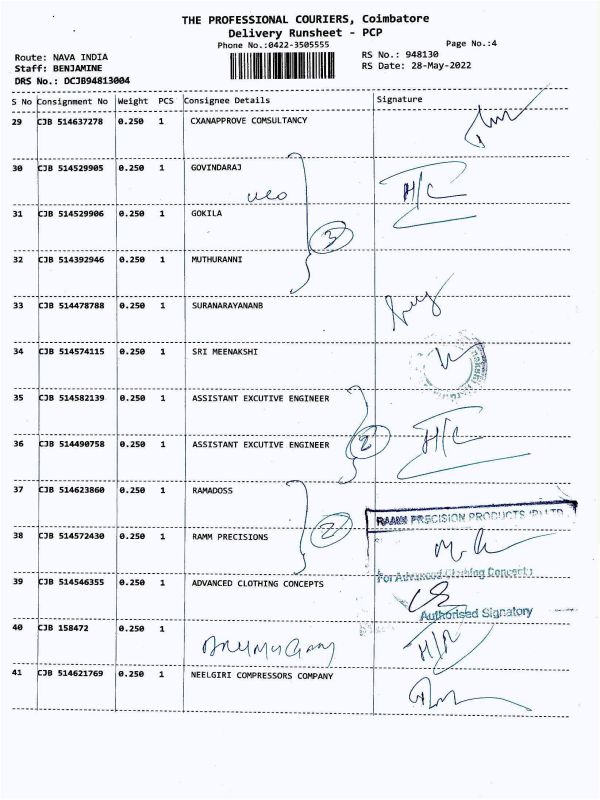 THE PROFESSIONAL COURIERS, Coimbatore
Delivery Runsheet - PCP
Phone No.:0422-3505555
Page No.:4
Route: NAVA INDIA
Staff: BENJAMINE
DRS No.: DCJB94813004
RS No.: 948130
RS Date: 28-May-2022
S No Consignment No Weight PCS Consignee Details Signature
29 CJB 514637278 0.250 1 CXANAPPROVE COMSULTANCY
30 CJB 514529905 0.250 1 GOVINDARAJ H/C
31 CJB 514529906 0.250 1 GOKILA
3
32 CJB 514392946 0.250 1 MUTHURANNI
33 CJB 514478788 0.250 1 SURANARAYANANB
34 CJB 514574115 0.250 1 SRI MEENAKSHI
35 CJB 514582139 0.250 1 ASSISTANT EXCUTIVE ENGINEER
36 CJB 514490758 0.250 1 ASSISTANT EXCUTIVE ENGINEER 2 H/C
37 CJB 514623860 0.250 1 RAMADOSS
RAMM PRECISION PRODUCTS (P) LTD
38 CJB 514572430 0.250 1 RAMM PRECISIONS 2
For Advanced Clothing Concepts
39 CJB 514546355 0.250 1 ADVANCED CLOTHING CONCEPTS
Authorised Signatory
40 CJB 158472 0.250 1
41 CJB 514621769 0.250 1 NEELGIRI COMPRESSORS COMPANY